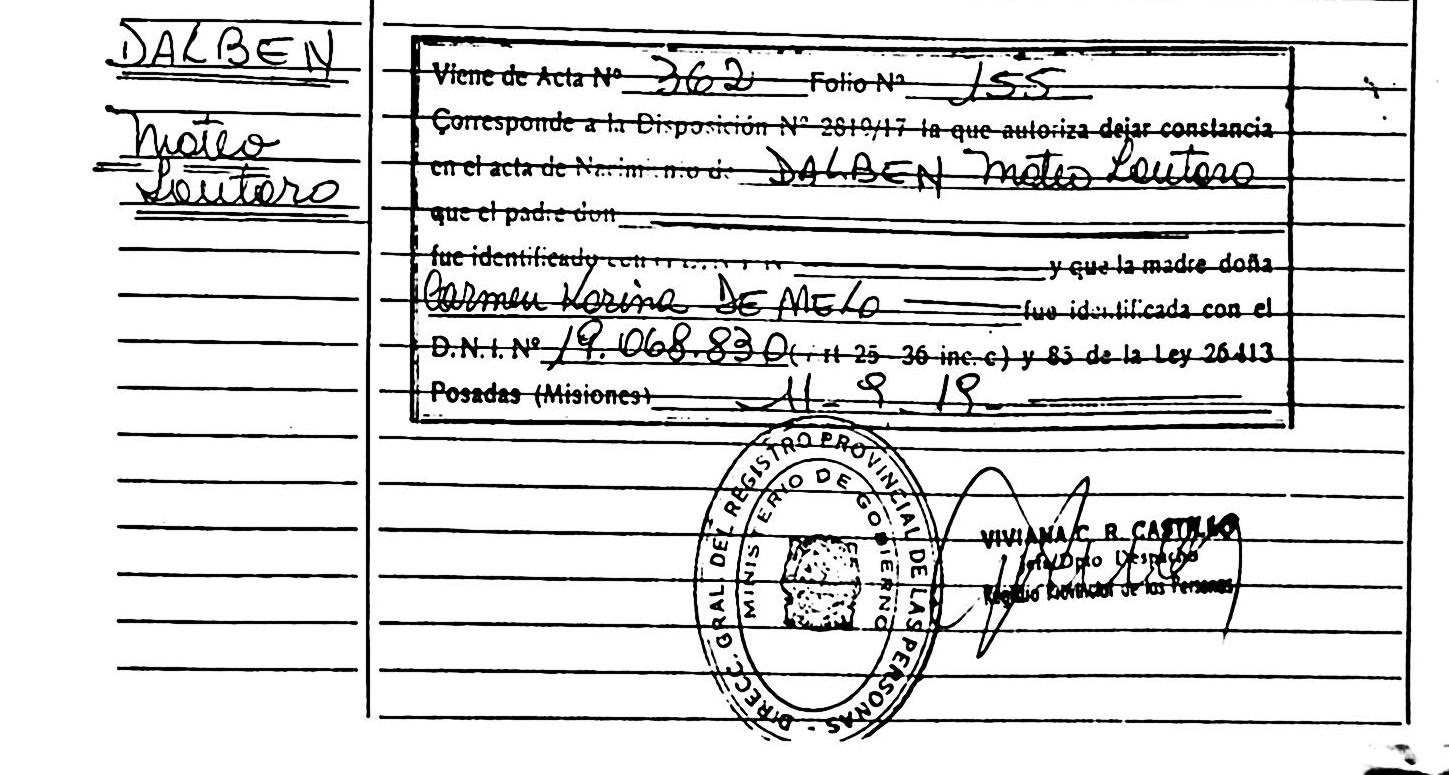 DALBEN
Mateo
Lautaro
Viene de Acta Nº 362 Folio Nº 155
Corresponde a la Disposición Nº 2819/17 la que autoriza dejar constancia
en el acta de Nacimiento de DALBEN Mateo Lautaro
que el padre don
fue identificado con y que la madre doña
Carmen Korina DE MELO fue identificada con el
D.N.I. Nº 19.068.830 (Art 25 - 36 inc. c) y 85 de la Ley 26413
Posadas (Misiones) 11 - 9 - 19 -
DIRECC. GRAL. DEL REGISTRO PROVINCIAL DE LAS PERSONAS -
MINISTERIO DE GOBIERNO
VIVIANA C. R. CASTILLO
Jefa/Dpto Despacho
Registro Provincial de las Personas